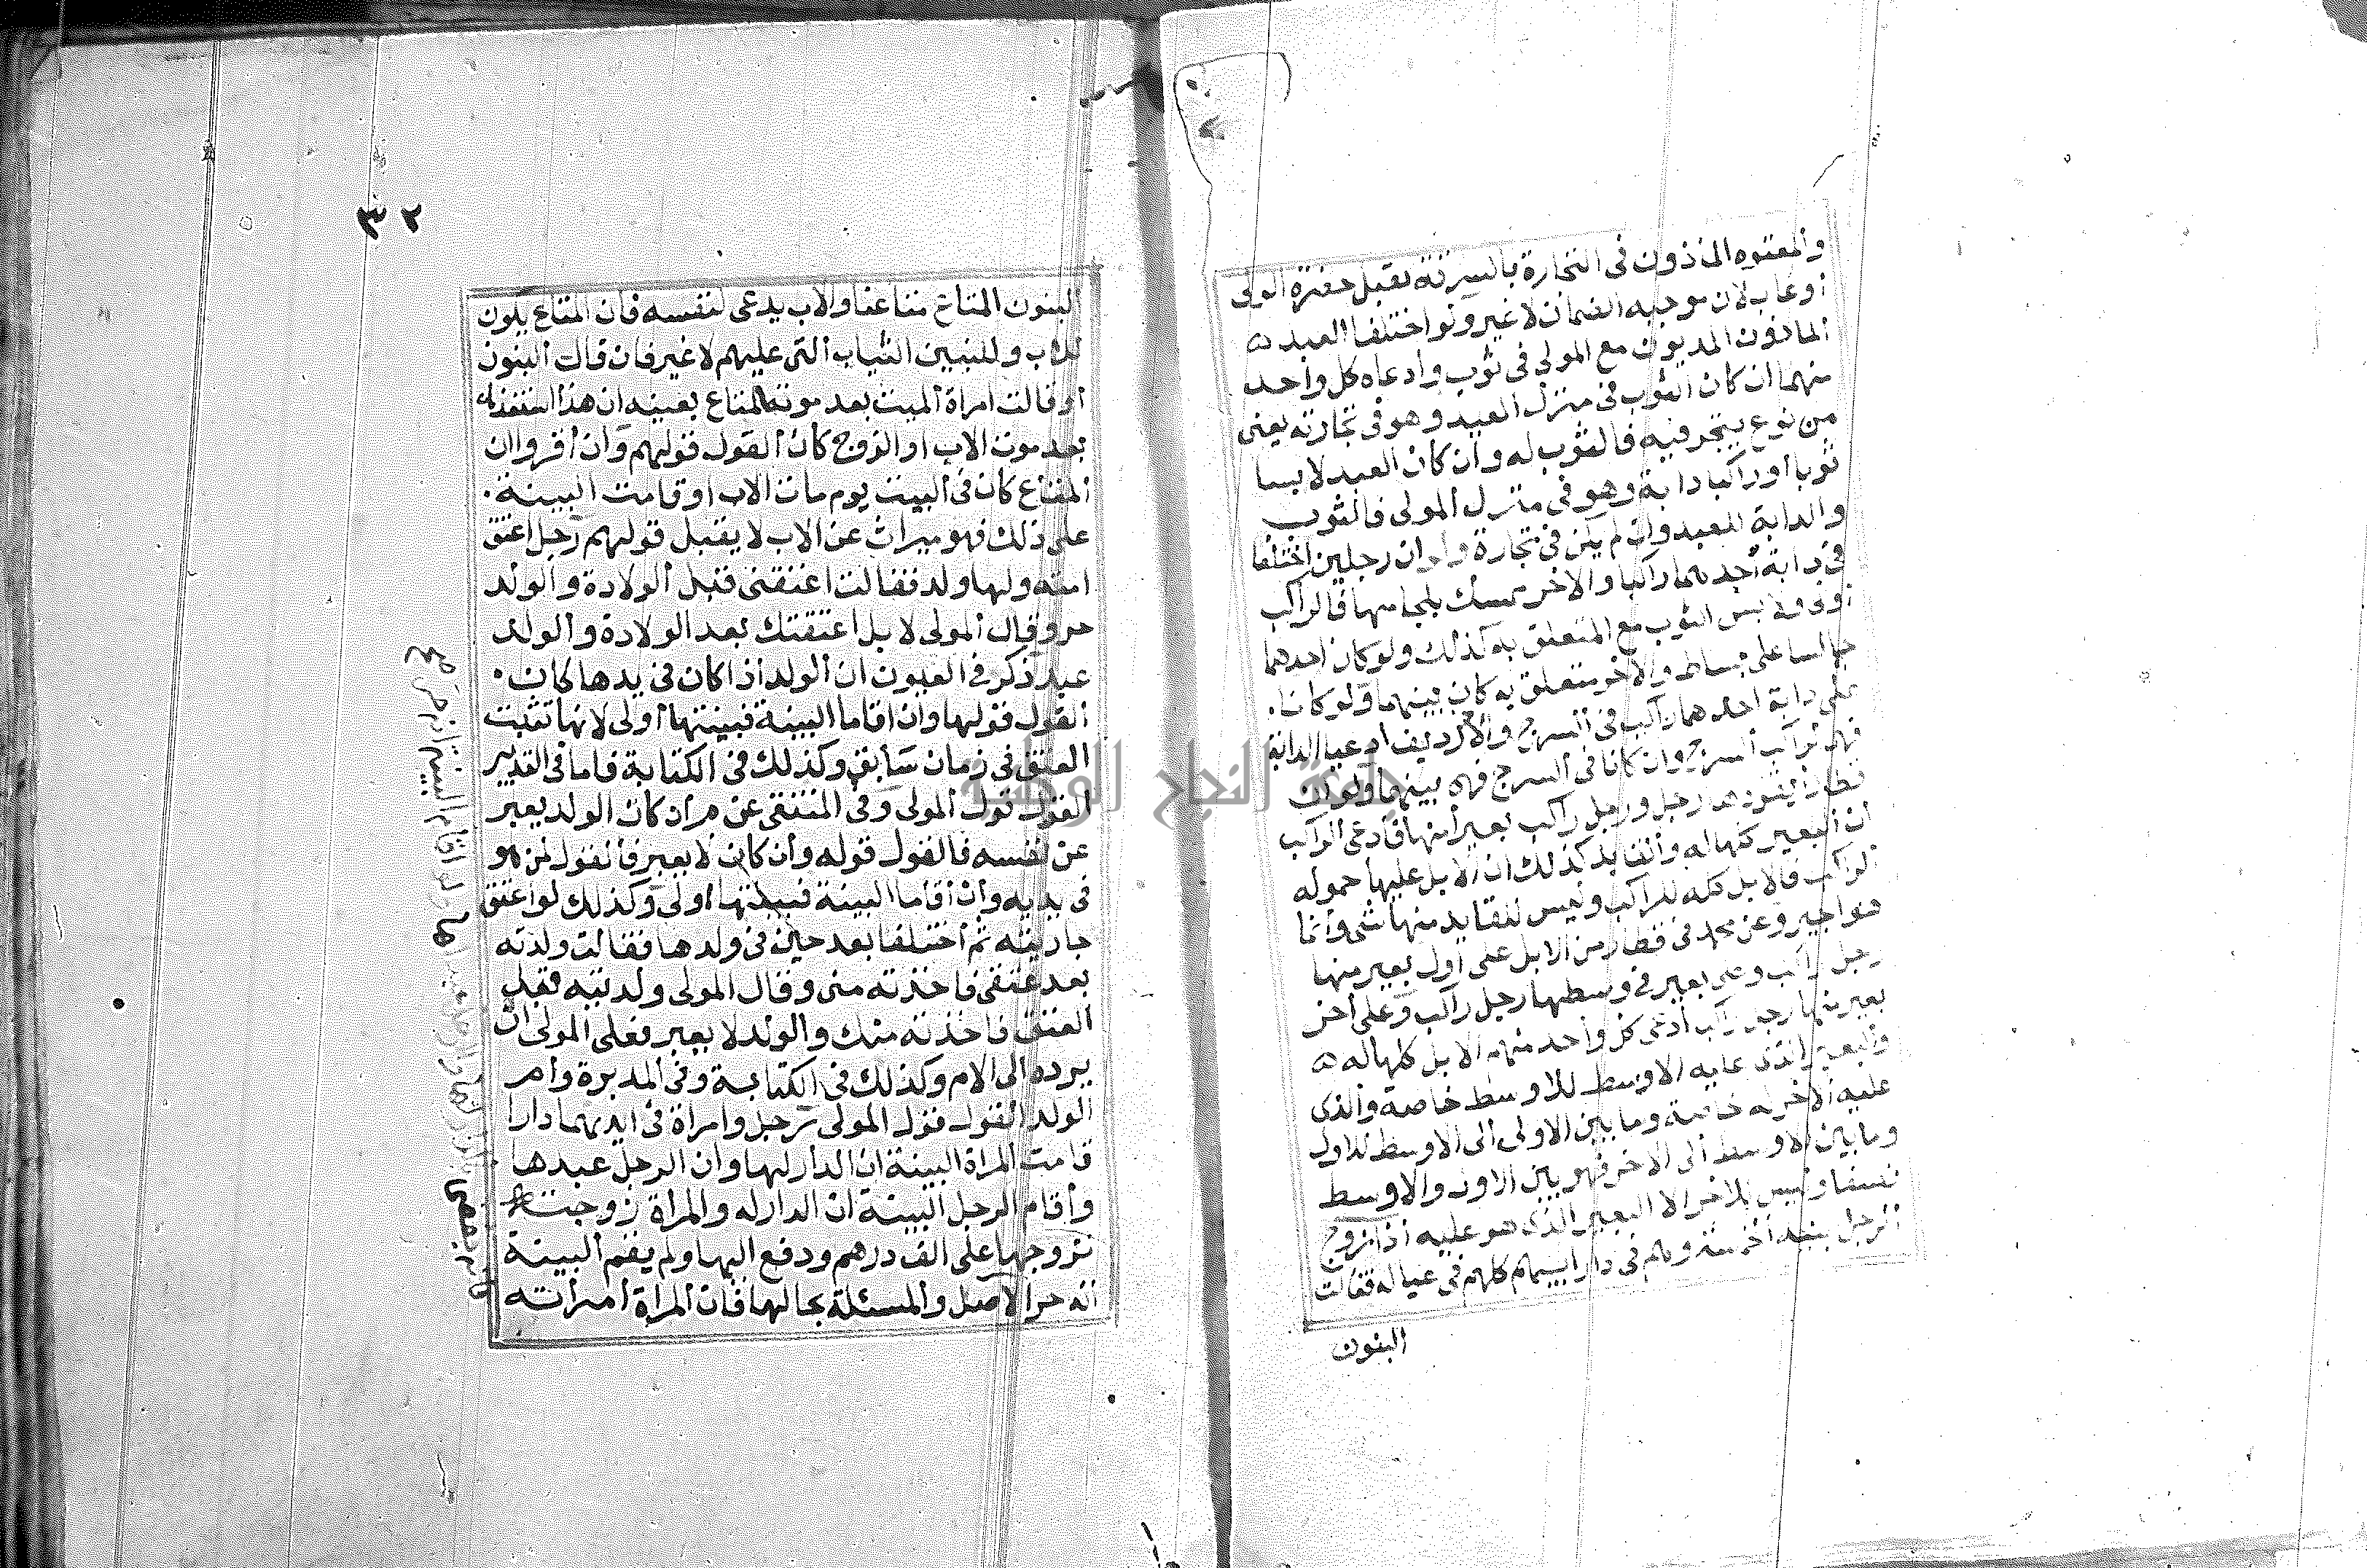 والمعتوه الماذون فى التجارة بالسرقة يقبل حضرة المولى
أو غاب لان موجبه الضمان لا غير ولو اختلفا العبد
الماذون المديون مع المولى فى ثوب وادعاه كل واحد
منهما ان كان الثوب فى منزل العبد وهو فى تجارته يعنى
من نوع يتجر فيه فالثوب له وان كان العبد لابسا
ثوبا او راكبا دابة وهو فى منزل المولى فالثوب
والدابة للعبد وان لم يكن فى تجارة ولو ان رجلين اختلفا
فى دابة أحدهما راكبا والاخر ممسك بلجامها فالراكب
أولى ولابس الثوب مع المتعلق به كذلك ولو كان احدهما
جالسا على بساط والاخر متعلق به كان بينهما ولو كانا
على دابة احدهما راكب فى السرج والاخر رديف ادعيا الدابة
فهى لراكب السرج وان كانا فى السرج فهى بينهما ولو ان
قطارا يقودها رجل ورجل راكب بعيرا منها فادعى الراكب
ان البعير كلها له والقايد كذلك ان الابل عليها حموله
الراكب فالابل كله للراكب وليس للقايد منها شى وانما
هو اجير وعن محمد فى قطار من الابل على اول بعير منها
رجل راكب وعلى بعير فى وسطها رجل راكب وعلى أخر
بعير منها رجل راكب أدعى كل واحد منهم الابل كلها له
والبعير الذى عليه الاوسط للاوسط خاصة والذى
عليه الاخر له خاصة وما بين الاولى الى الاوسط للاول
وما بين الاوسط الى الاخر فهو بين الاول والاوسط
نصفا وليس للاخر الا البعير الذى هو عليه أذا تزوج
الرجل بنيه الخمسة وهم فى دار ابيهم كلهم فى عياله فقالت
البنون
٣٢
البنون المتاع متاعنا والاب يدعى لنفسه فان المتاع يكون
للاب وللبنين الثياب التى عليهم لا غير فان قالت البنون
أو قالت امراة الميت بعد موته لمتاع بعينه ان هذا استفذنا
بعد موت الاب او الزوج كان القول قولهم وان أقروا ان
المتاع كان فى البيت يوم مات الاب او قامت البينة
على ذلك فهو ميراث عن الاب لا يقبل قولهم رجل اعتق
امته ولها ولد فقالت اعتقتنى قبل الولادة والولد
حر وقال المولى لا بل اعتقتك بعد الولادة والولد
عبد ذكر فى العيون ان الولد أذا كان فى يدها كان
القول قولها وان اقاما البينة فبينتها أولى لانها تثبت
العتق فى زمان سابق وكذلك فى الكتابة فاما فى التدبير
القول قول المولى وفى المنتقى عن م ان كان الولد يعبر
عن نفسه فالقول قوله وأن كان لا يعبر فالقول لمن هو
فى يديه وان أقاما البينة فبينتها أولى وكذلك لو اعتق
جاريته ثم أختلفا بعد حين فى ولدها فقالت ولدته
بعد عتقى فاخذته منى وقال المولى ولدتيه قبل
العتق فاخذته منك والولد لا يعبر فعلى المولى ان
يرده الى الام وكذلك فى الكتابة وفى المدبرة وأم
الولد القول قول المولى رجل وامراة فى ايديهما دارا
قامت المراة البينة ان الدار لها وان الرجل عبدها
وأقام الرجل البينة ان الدار له والمراة زوجته
تزوجها على الف درهم ودفع اليها ولم يقم البينة
انه حر الاصل والمسئلة بحالها فان المراة أمرأته
جامعة النجاح الوطنية